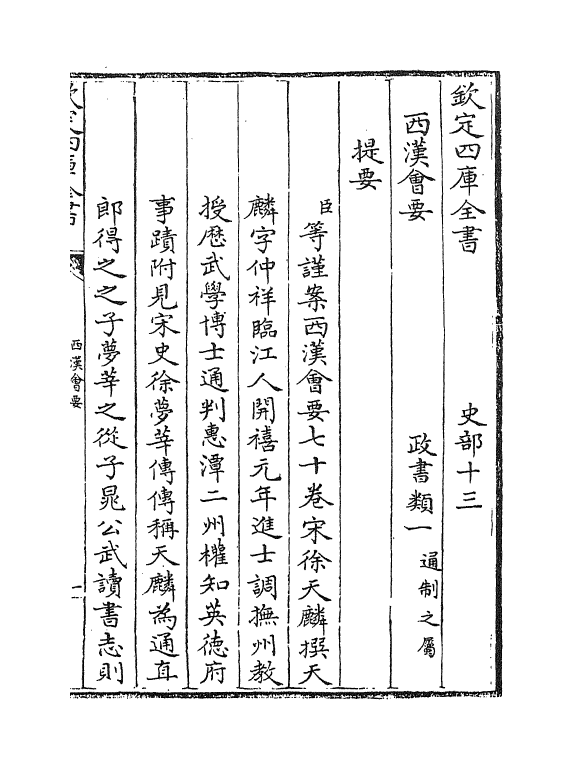 欽定四庫全書　史部十三
西漢會要　政書類一通制之屬
提要
臣等謹案西漢會要七十卷宋徐天麟撰天
麟字仲祥臨江人開禧元年進士調撫州教
授歷武學博士通判惠潭二州權知英德府
事蹟附見宋史徐夢莘傳傳稱天麟為通直
郎得之之子夢莘之從子晁公武讀書志則
欽定四庫全書
西漢會要
一